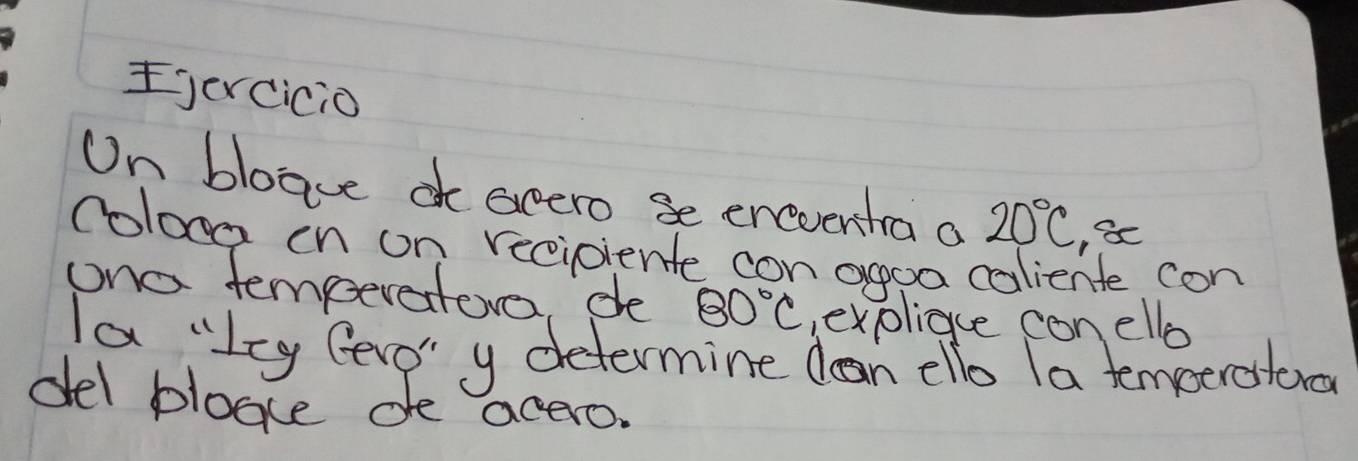 Ejercicio
Un bloque de acero se encuentra a 20°C, se
coloca en un recipiente con agua caliente con
una temperatura de 80°C, explique con ello
la "Ley Cero" y determine con ello la temperatura
del bloque de acero.